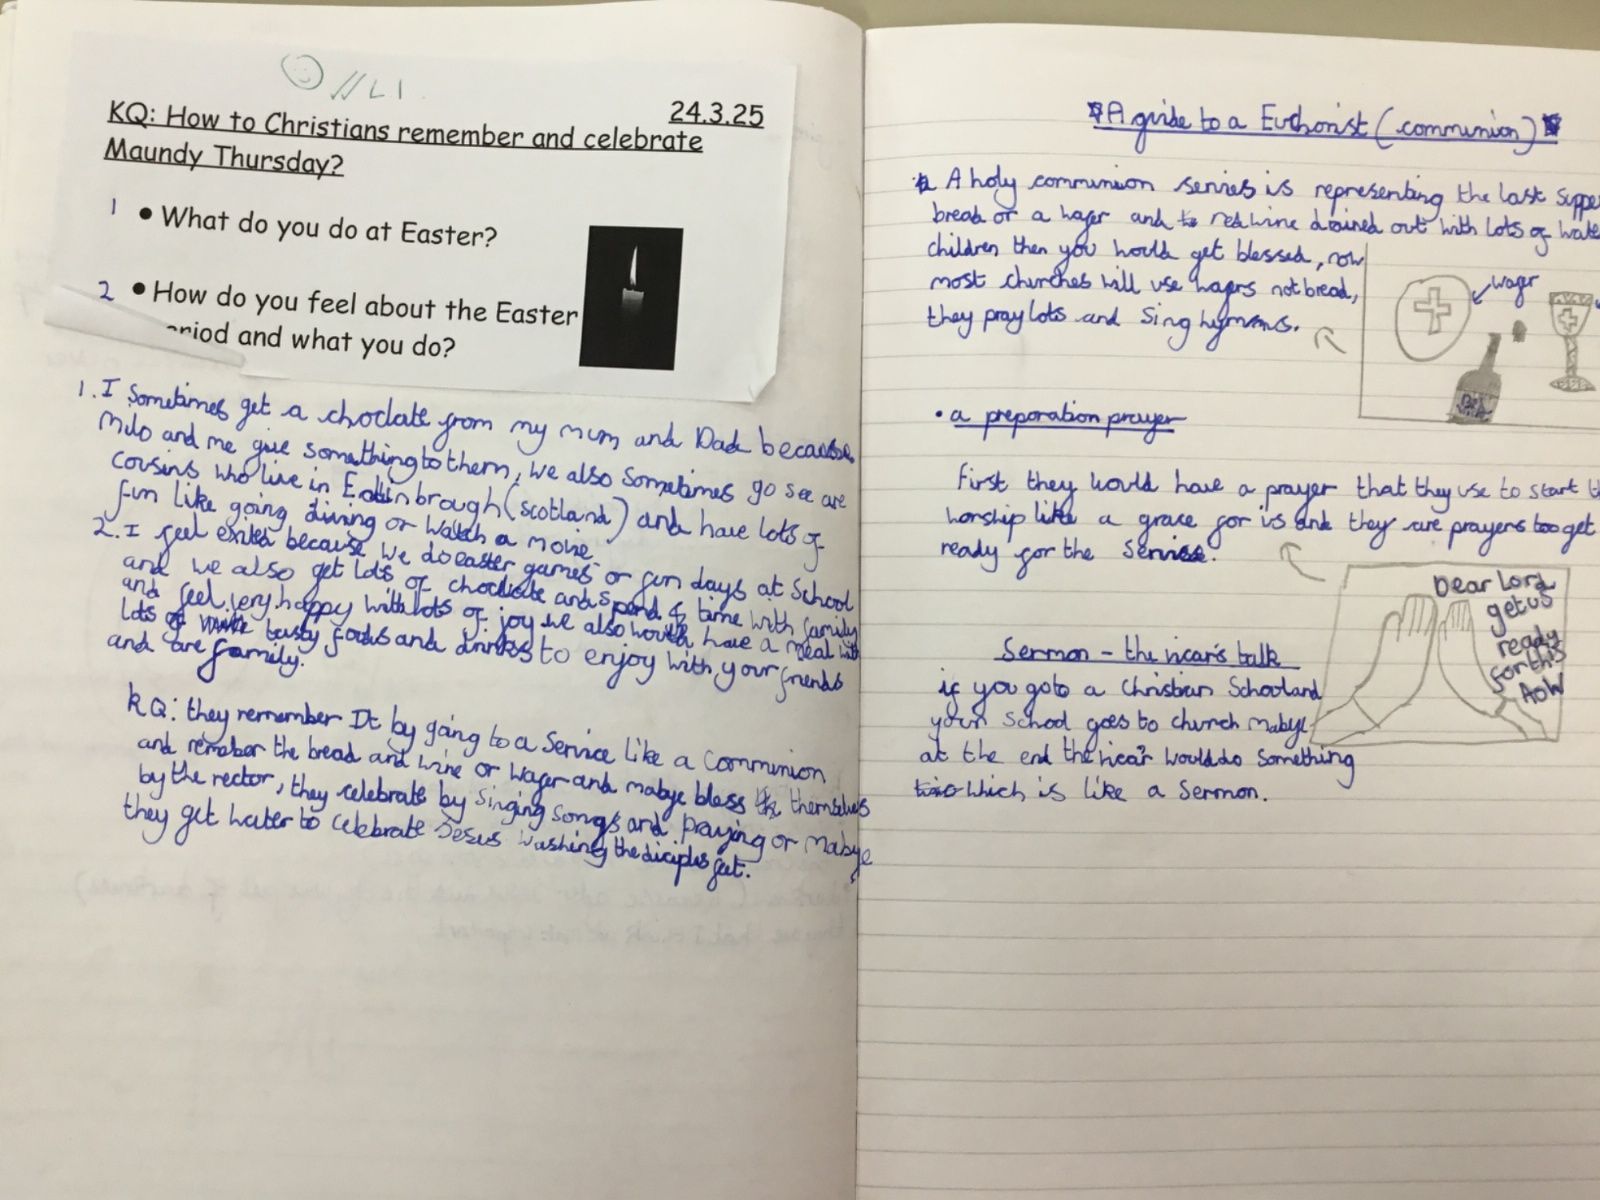 //LI
24.3.25
KQ: How to Christians remember and celebrate
Maundy Thursday?
1 • What do you do at Easter?
2 • How do you feel about the Easter
eriod and what you do?
1. I Sometimes get a choclate from my mum and Dad because
Milo and me give something to them, we also Sometimes go see are
cousins who live in Edinbrough (scotland) and have lots of
fun like going diving or watch a movie.
2. I feel exited because we do easter games or fun days at School
and we also get lots of choclate and spend time with family
and feel very happy with lots of joy we also would have a meal with
lots of tasty foods and drinks to enjoy with your friends
and are family.
KQ: they remember It by going to a Service like a Communion
and remeber the bread and wine or wager and mabye bless themselves
by the rector, they celebrate by singing songs and praying or mabye
they get water to celebrate Jesus washing the diciples feet.
A guide to a Eucharist (communion)
A holy communion servies is representing the last Suppe
bread or a wager and red wine drained out with lots of wate
children then you would get blessed, now
most churches will use wagers not bread,
they pray lots and Sing hymns.
wager
• a preporation prayer
First they would have a prayer that they use to start t
worship like a grace for us and they are prayers too get
ready for the Service.
Dear Lord
get us
ready
for this
AOW
Sermon - the vicar's talk
if you go to a Christian School and
your School goes to church mabye
at the end the vicar would do Something
which is like a Sermon.